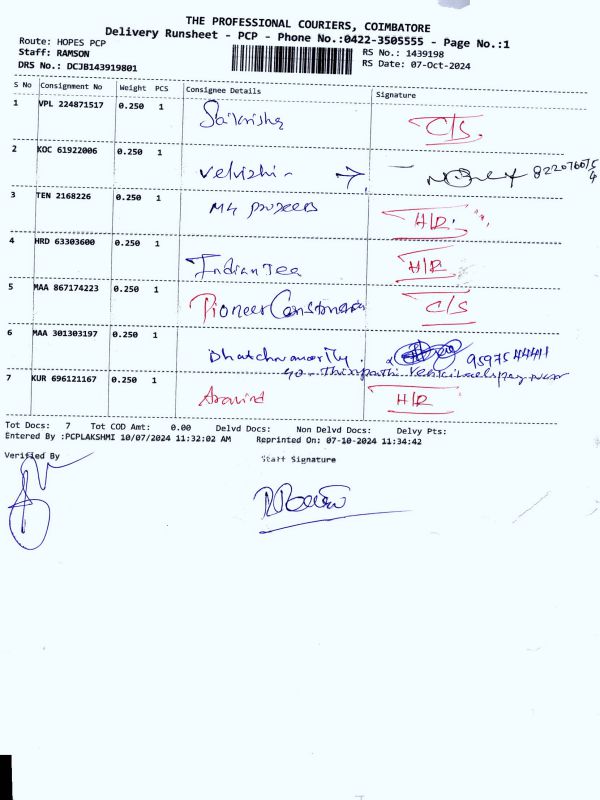 THE PROFESSIONAL COURIERS, COIMBATORE
Delivery Runsheet - PCP - Phone No.:0422-3505555 - Page No.:1
Route: HOPES PCP RS No.: 1439198
Staff: RAMSON RS Date: 07-Oct-2024
DRS No.: DCJB143919801
S No Consignment No Weight PCS Consignee Details Signature
1 VPL 224871517 0.250 1 Saikrisha C/S.
2 KOC 61922006 0.250 1 Velvizhi
3 TEN 2168226 0.250 1 H/R.
4 HRD 63303600 0.250 1 Indian Tea H/R
5 MAA 867174223 0.250 1 Pioneer C/S
6 MAA 301303197 0.250 1 Dhatchnamorthy 9597544441
7 KUR 696121167 0.250 1 Aravind H/R
Tot Docs: 7 Tot COD Amt: 0.00 Delvd Docs: Non Delvd Docs: Delvy Pts:
Entered By :PCPLAKSHMI 10/07/2024 11:32:02 AM Reprinted On: 07-10-2024 11:34:42
Verified By Staff Signature